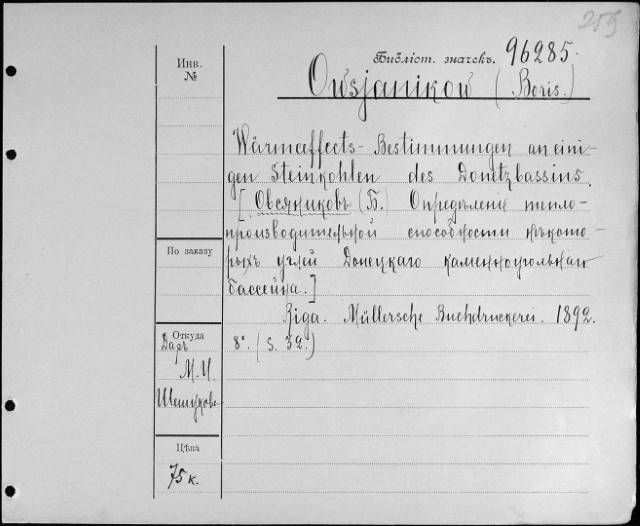 259
Библіот. значекъ. 96285.
Инв.
№
Owsjanikow (Boris.)
Wärmeeffects-Bestimmungen an eini-
gen Steinkohlen des Donetzbassins.
[Овсяниковъ (Б.) Опредѣленіе тепло-
производительной способности нѣкото-
рыхъ углей Донецкаго каменноугольнаго
бассейна.]
По заказу
Riga. Müllersche Buchdruckerei. 1892.
8°. (S. 32.)
Откуда
Даръ
М.И.
Цѣна
75 к.